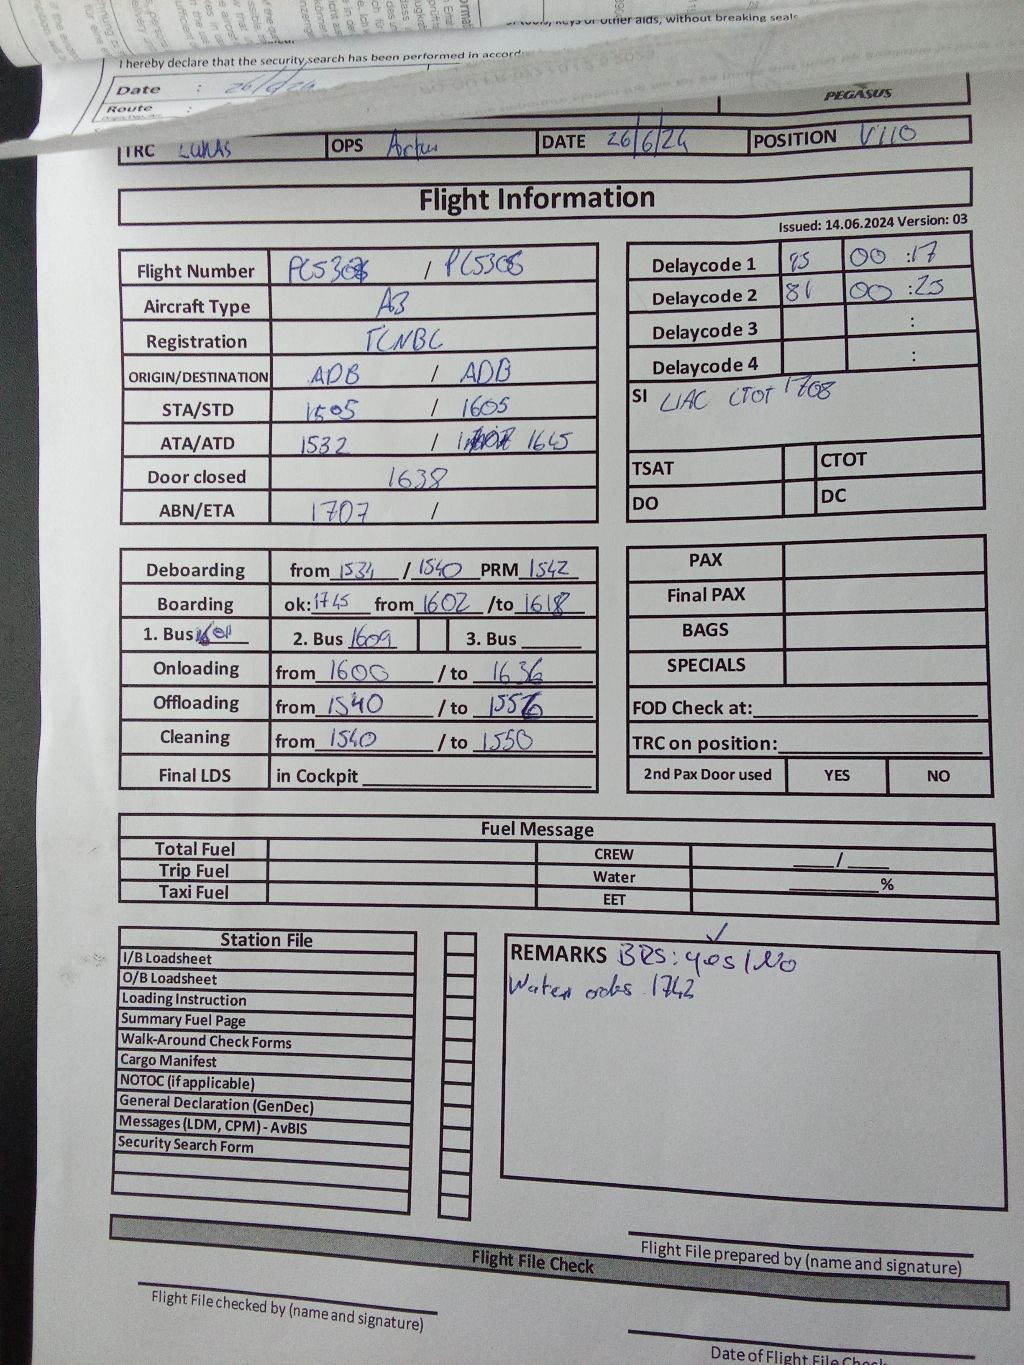 or tools, keys or other aids, without breaking seals
I hereby declare that the security search has been performed in accord
Date :
Route :
PEGASUS
TRC LUKAS OPS Artur DATE 26/6/24 POSITION V110
Flight Information
Issued: 14.06.2024 Version: 03
Flight Number PC5305 / PC5306
Aircraft Type A3
Registration TCNBC
ORIGIN/DESTINATION ADB / ADB
STA/STD 1505 / 1605
ATA/ATD 1532 / 1645
Door closed 1638
ABN/ETA 1707 /
Delaycode 1 95 00 :17
Delaycode 2 81 00 :23
Delaycode 3 :
Delaycode 4 :
SI LIAC CTOT 1708
TSAT CTOT
DO DC
Deboarding from 1534 / 1540 PRM 1542
Boarding ok: 1745 from 1602 /to 1618
1. Bus 1601 2. Bus 1609 3. Bus
Onloading from 1600 / to 1636
Offloading from 1540 / to 1556
Cleaning from 1540 / to 1550
Final LDS in Cockpit
PAX
Final PAX
BAGS
SPECIALS
FOD Check at:
TRC on position:
2nd Pax Door used YES NO
Fuel Message
Total Fuel CREW /
Trip Fuel Water %
Taxi Fuel EET
Station File
I/B Loadsheet
O/B Loadsheet
Loading Instruction
Summary Fuel Page
Walk-Around Check Forms
Cargo Manifest
NOTOC (if applicable)
General Declaration (GenDec)
Messages (LDM, CPM) - AvBIS
Security Search Form
REMARKS BRS: yes / No
Water 1742
Flight File prepared by (name and signature)
Flight File Check
Flight File checked by (name and signature)
Date of Flight File Check